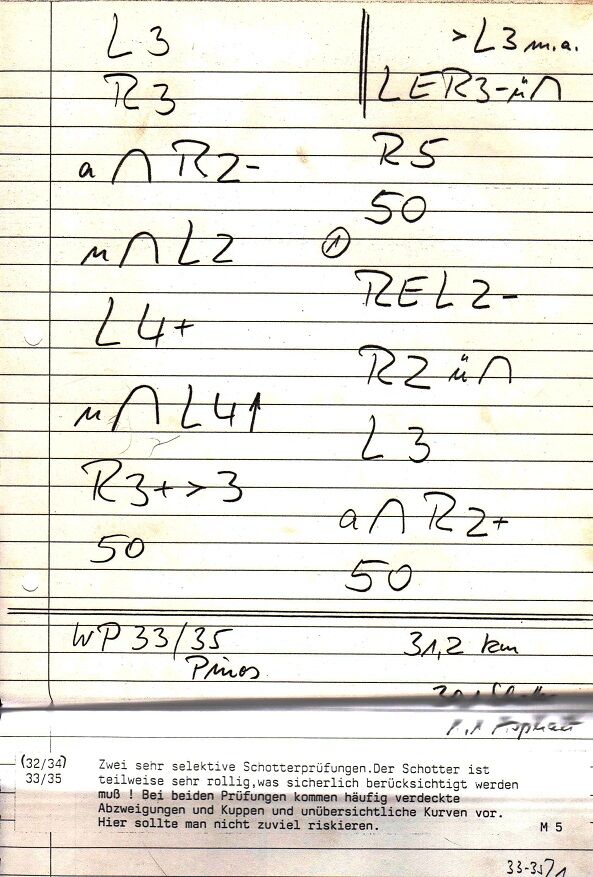 L 3
R 3
a ∩ R 2-
m ∩ L 2
L 4+
m ∩ L 4↑
R 3+ > 3
50
> L 3 m.a.
LER3-ü∩
R 5
50
①
REL 2-
R 2 ü∩
L 3
a ∩ R 2+
50
WP 33/35
Pinos
31,2 km
Asphalt
(32/34)
33/35
Zwei sehr selektive Schotterprüfungen.Der Schotter ist
teilweise sehr rollig,was sicherlich berücksichtigt werden
muß ! Bei beiden Prüfungen kommen häufig verdeckte
Abzweigungen und Kuppen und unübersichtliche Kurven vor.
Hier sollte man nicht zuviel riskieren.
M 5
33-35/1